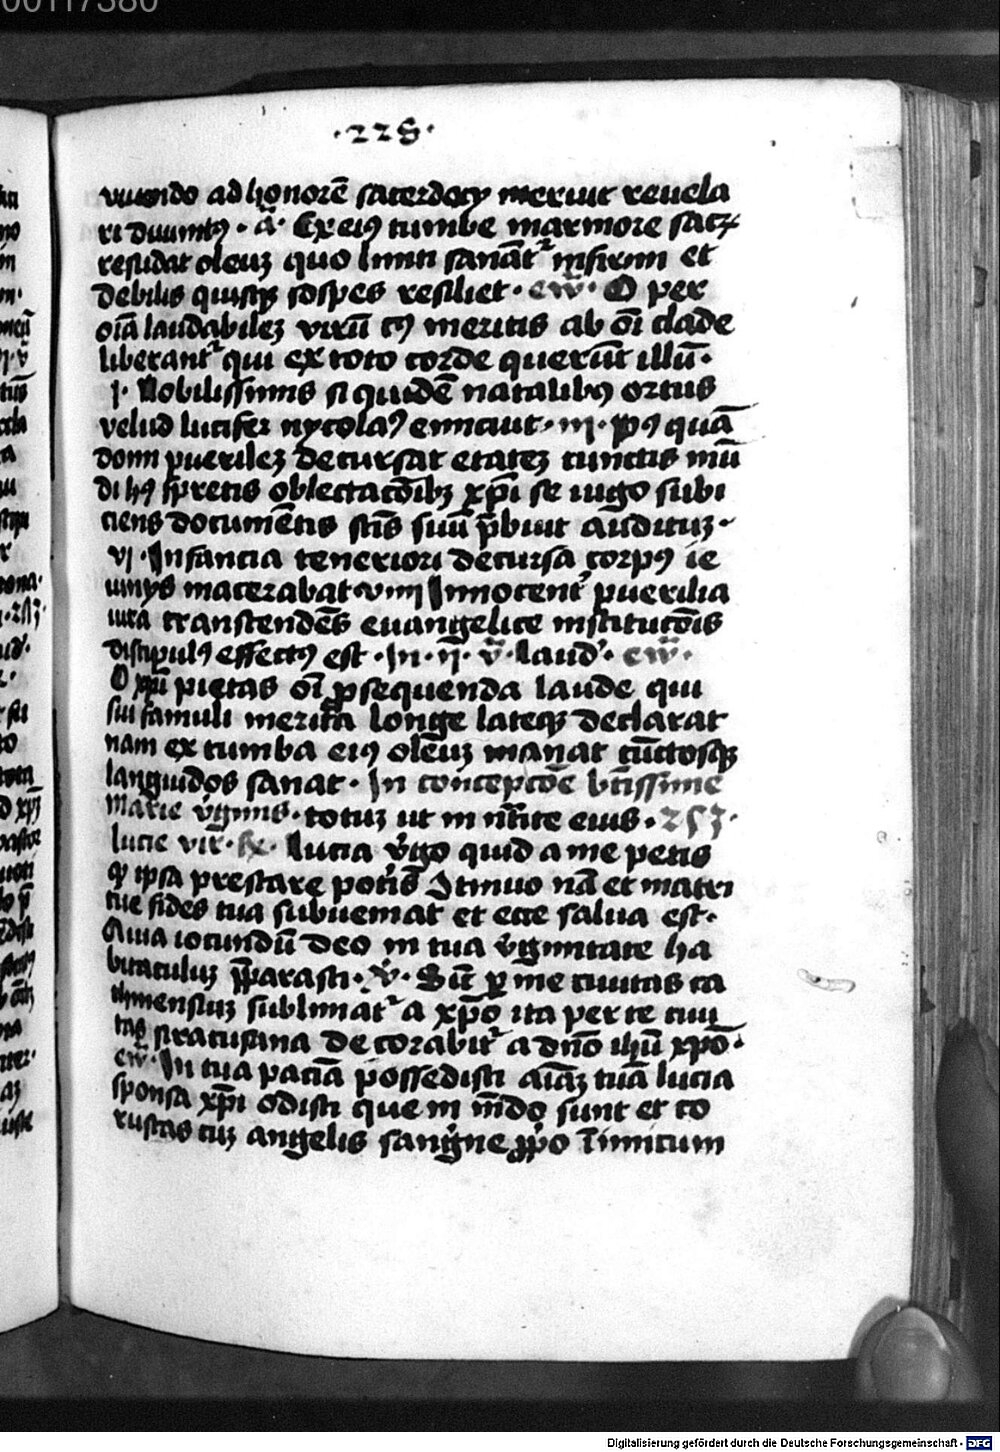 00117380
·228·
viuendo ad honorē sacerdocy meruit reuela
ri diuinitꝰ · a᷑ · Ex eiꝰ tumbe marmore sacꝝ
resudat oleuꝫ quo liniti sanāt᷑ infirmi et
debilis quisqꝫ sospes resiliet · ew̄ · O per
oīa laudabileꝫ virū cꝰ meritis ab oī clade
liberant᷑ qui ex toto corde querūt illū ·
j · Nobilissimis si quidē natalibꝰ ortus
velud lucifer nycolaꝰ enicuit · iij · pꝰ quā
domi puerileꝫ decursat etateꝫ cunctis mū
di hꝰ spretis oblectacōibꝫ xp̄i se iugo subi
ciens documētis sc̄is suū p̄buit audituꝫ ·
vj · Infancia teneriori decursa corpꝰ ie
iunijs macerabat viiij Innocent᷑ puerilia
iura transcendēs euangelice institucōis
discipulꝰ effectꝰ est · In · ij · v̄ · laud᷑ · ew̄ ·
O xp̄i pietas oī prosequenda laude qui
sui famuli merita longe lateqꝫ declarat
nam ex tumba eiꝰ oleūꝫ manat cūctosqꝫ
languidos sanat · In concepcōe btīssime
Marie v̓ginis · totuꝫ ut in nr̄ite eius · 253 ·
lucie vir · hx · Lucia v̓go quid a me petis
qꝫ ipsa prestare pot̓is Itinuo nā et matri
tue fides tua subuemat et ecce salua est ·
Quia iocundū deo in tua v̓ginitate ha
bitaculuꝫ p̄parasti · v᷑ · Sic̄ ꝑ me ciuitas ca
thinensiuꝫ sublimat᷑ a xp̄o ita per te ciui
tas siracusana decorabit᷑ a dn̄o ihū xp̄o ·
ew̄ · In tua paciā possedisti aīaꝫ tuā lucia
sponsa xp̄i odisti que in mūdo sunt et co
ruscas cuꝫ angelis sangine pp̄o Inimicum
Digitalisierung gefördert durch die Deutsche Forschungsgemeinschaft · DFG